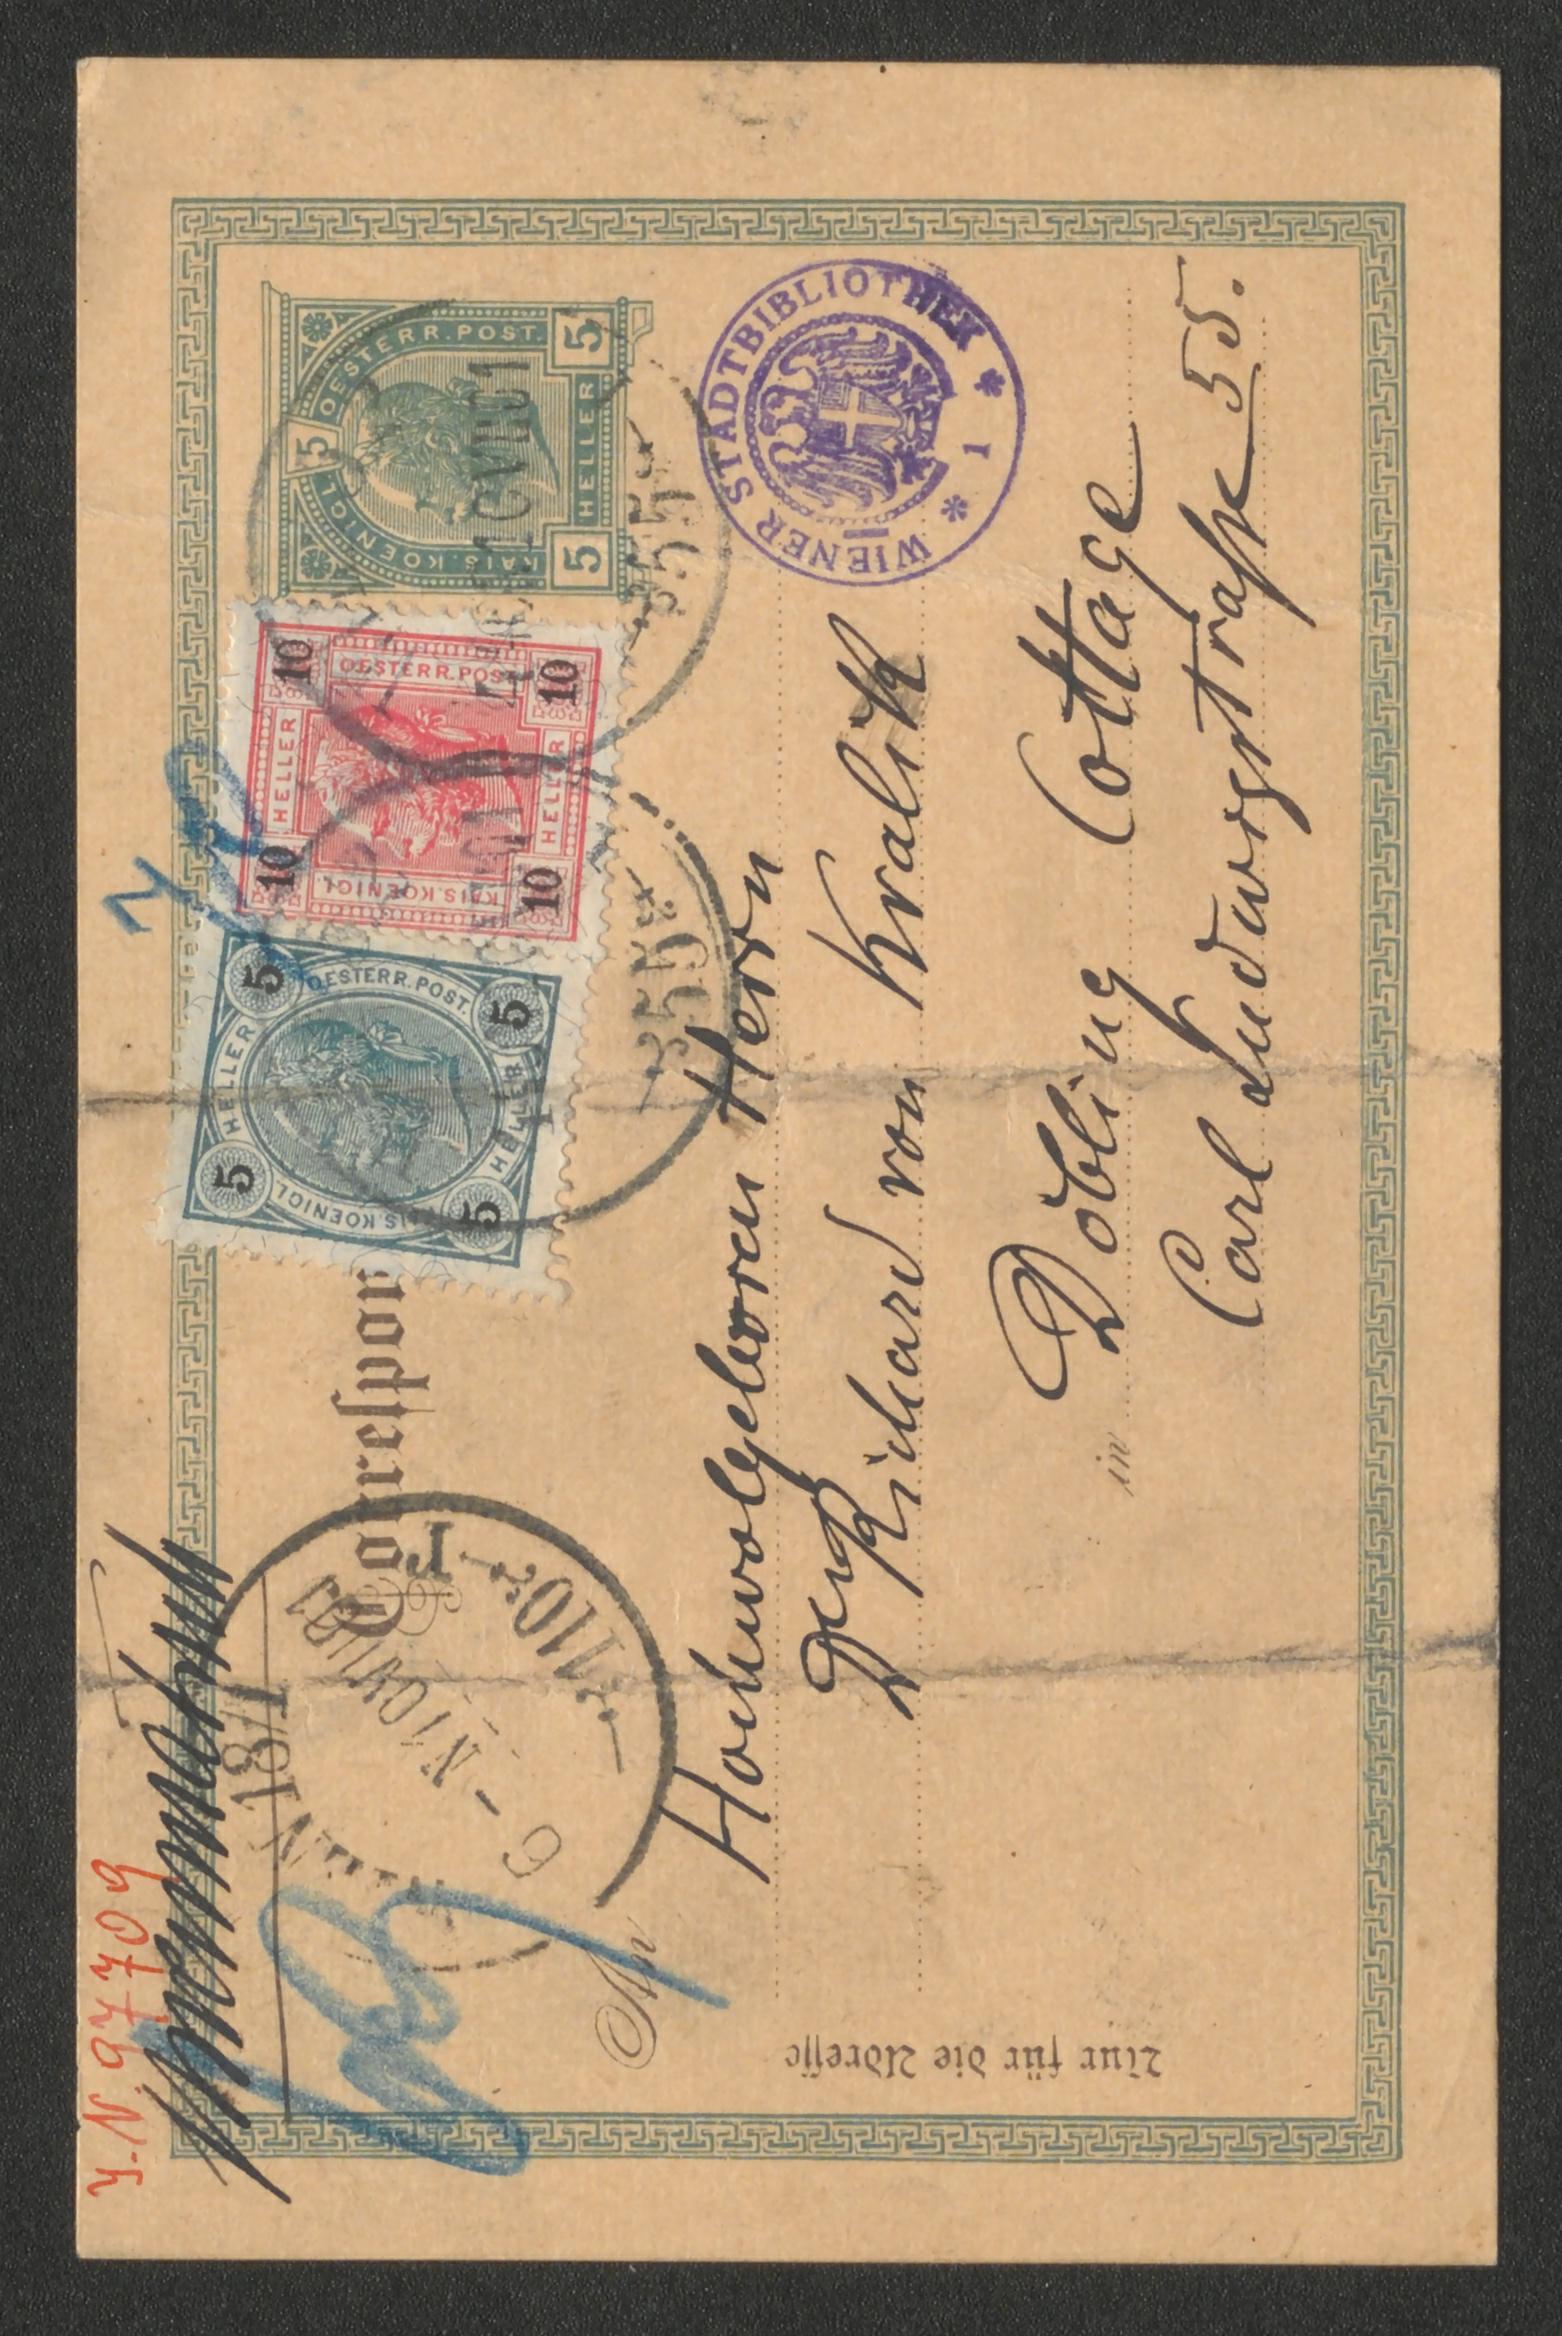 J.-N. 97709
Correspon
18/1
N 10 VII 01
110
KAIS. KOENIGL. OESTERR. POST.
5 HELLER 5
5
KAIS. KOENIGL. OESTERR. POST.
10 HELLER 10
10 HELLER 10
KAIS. KOENIGL. OESTERR. POST.
5 HELLER 5
5 HELLER 5
355
355
WIENER STADTBIBLIOTHEK
* 1 *
An
Hochwolgeboren Herrn
Dr Richard von Kralik
in Döbling Cottage
Carl Ludwigstraße 55.
Nur für die Adresse